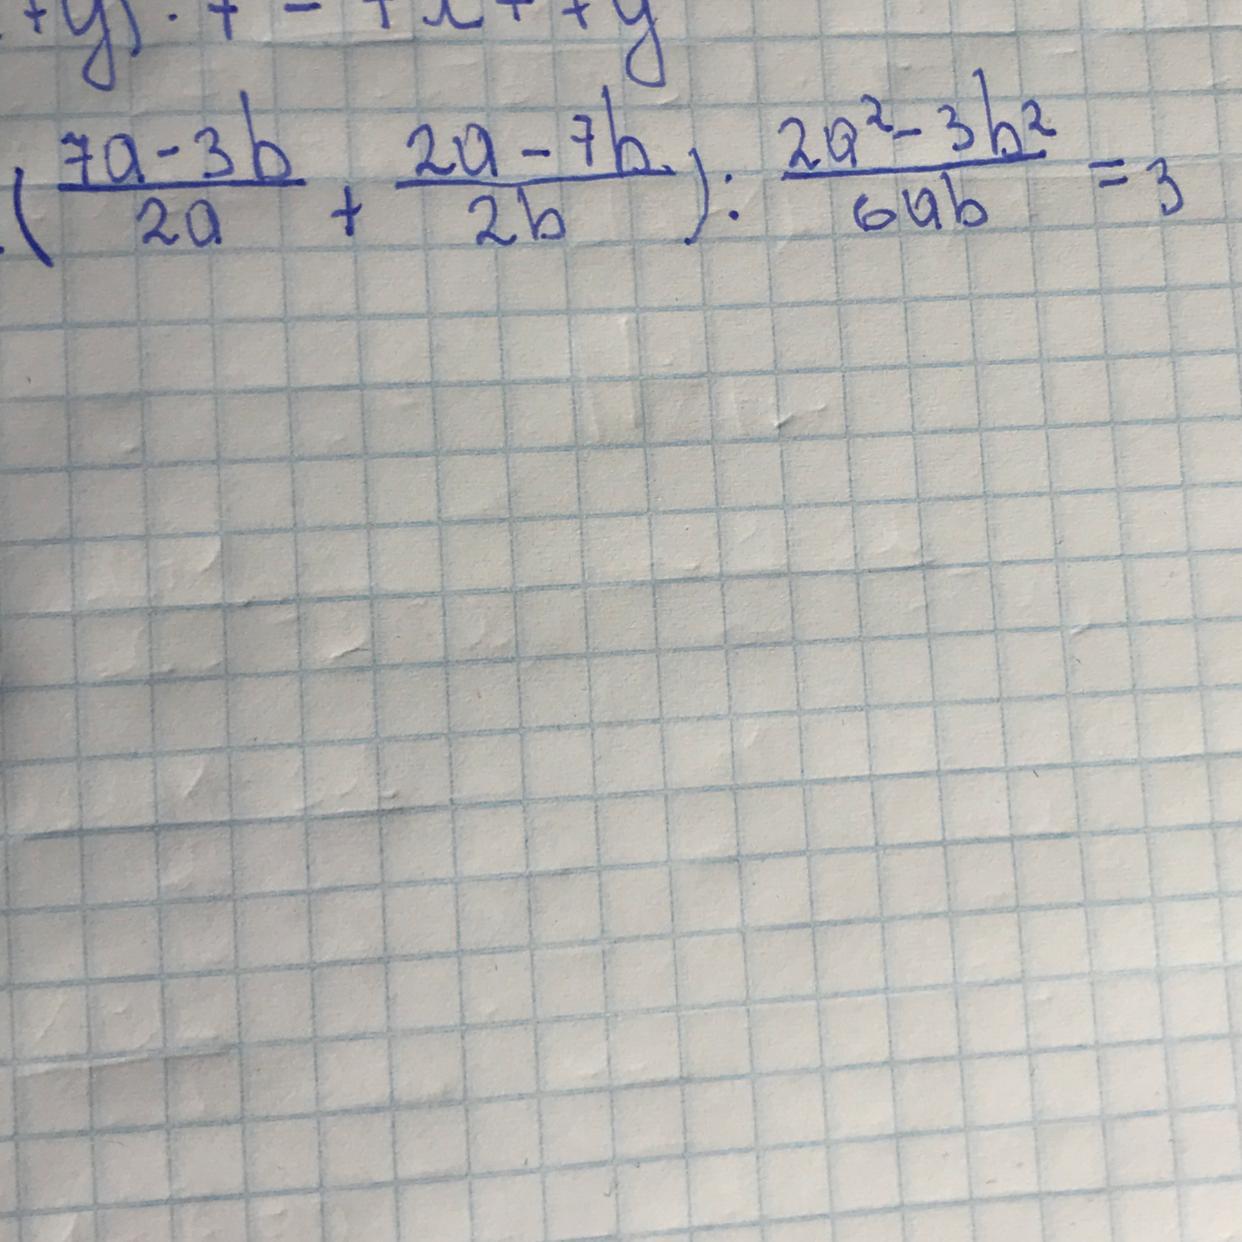 +y) · 7 - 7x + 7y
(7a-3b/2a + 2a-7b/2b) : 2a²-3b²/6ab = 3